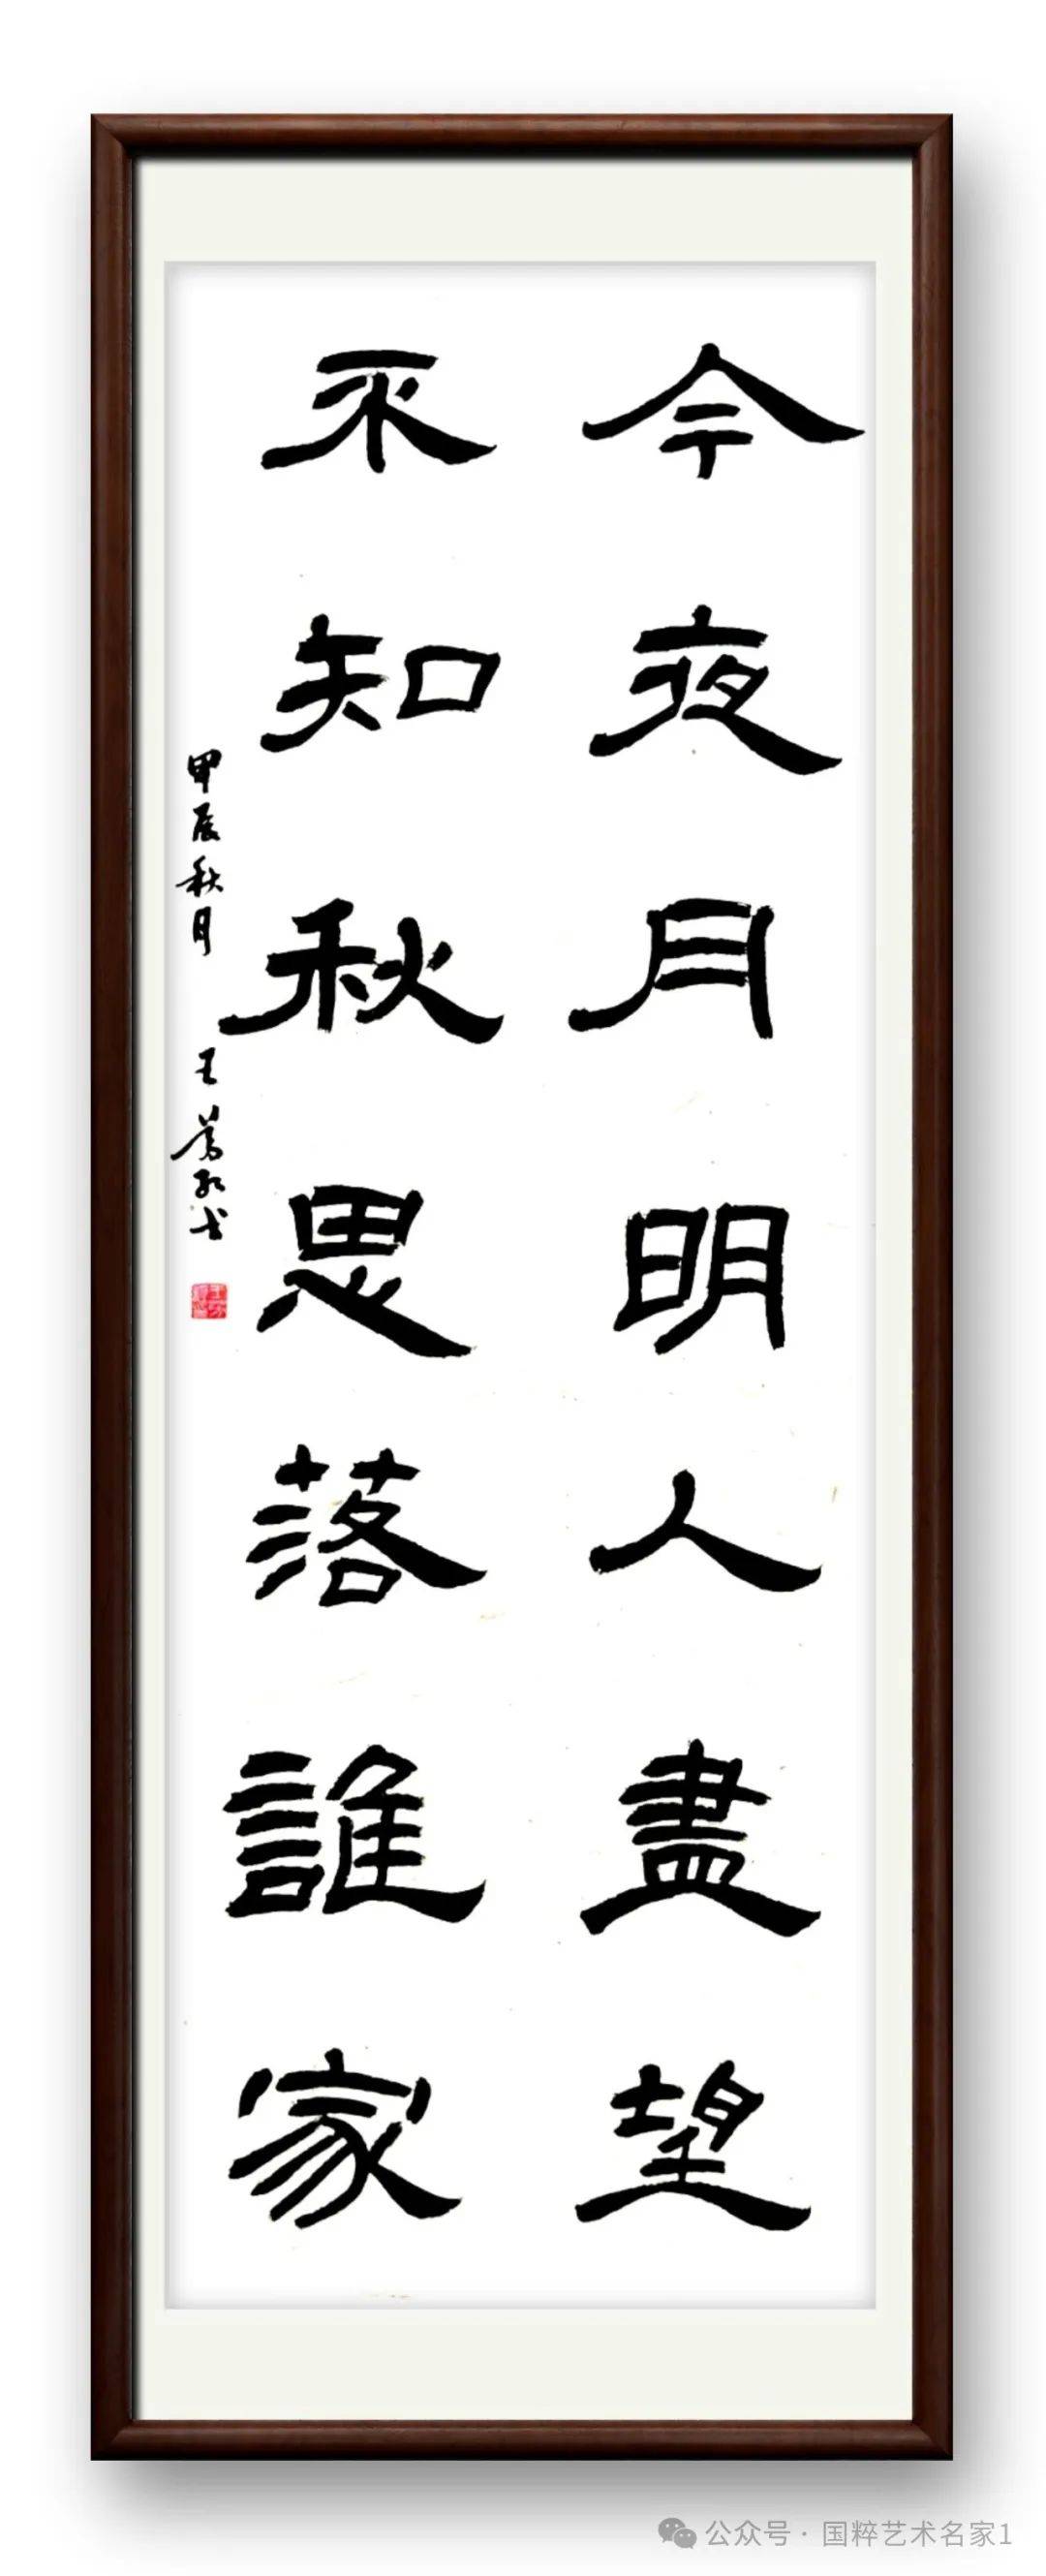 今夜月明人盡望
不知秋思落誰家
甲辰秋月 王
公众号 · 国粹艺术名家1